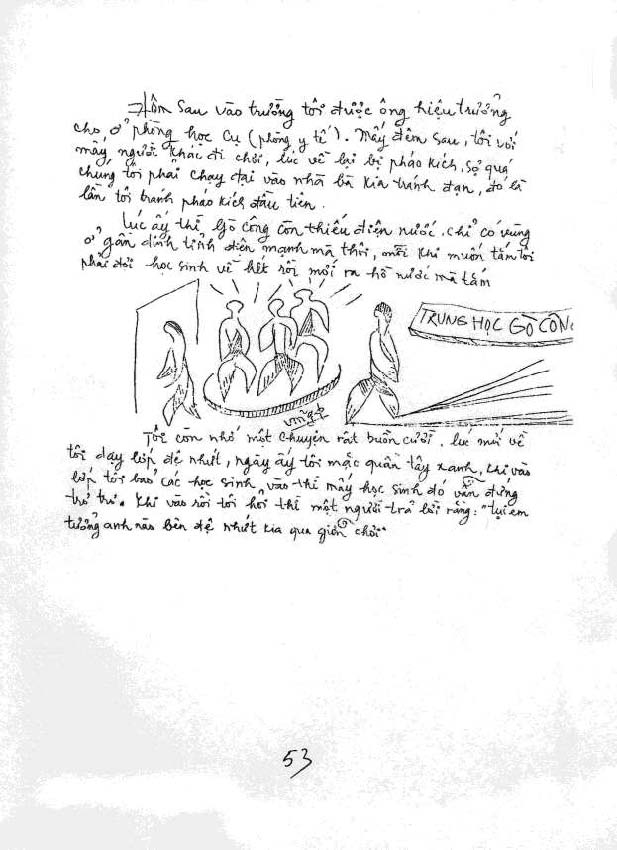 Hôm sau vào trường tôi được ông hiệu trưởng
cho ở phòng học cụ (phòng y tế). Mấy đêm sau, tôi với
mấy người khác đi chơi, lúc về lại bị pháo kích, sợ quá
chúng tôi phải chạy đại vào nhà bà kia tránh đạn, đó là
lần tôi tránh pháo kích đầu tiên.
Lúc ấy thì Gò Công còn thiếu điện nước. Chỉ có vùng
ở gần dinh tỉnh điện mạnh mà thôi, mỗi khi muốn tắm tôi
phải đợi học sinh về hết rồi mới ra hồ nước mà tắm
TRUNG HỌC GÒ CÔN
Tôi còn nhớ một chuyện rất buồn cười. lúc mới về
tôi dạy lớp đệ nhứt, ngày ấy tôi mặc quần tây xanh, khi vào
lớp tôi bảo các học sinh vào thì mấy học sinh đó vẫn đứng
trơ trơ. Khi vào rồi tôi hỏi thì một người trả lời rằng: "tụi em
tưởng anh nào bên đệ nhứt kia qua giỡn chơi"
53